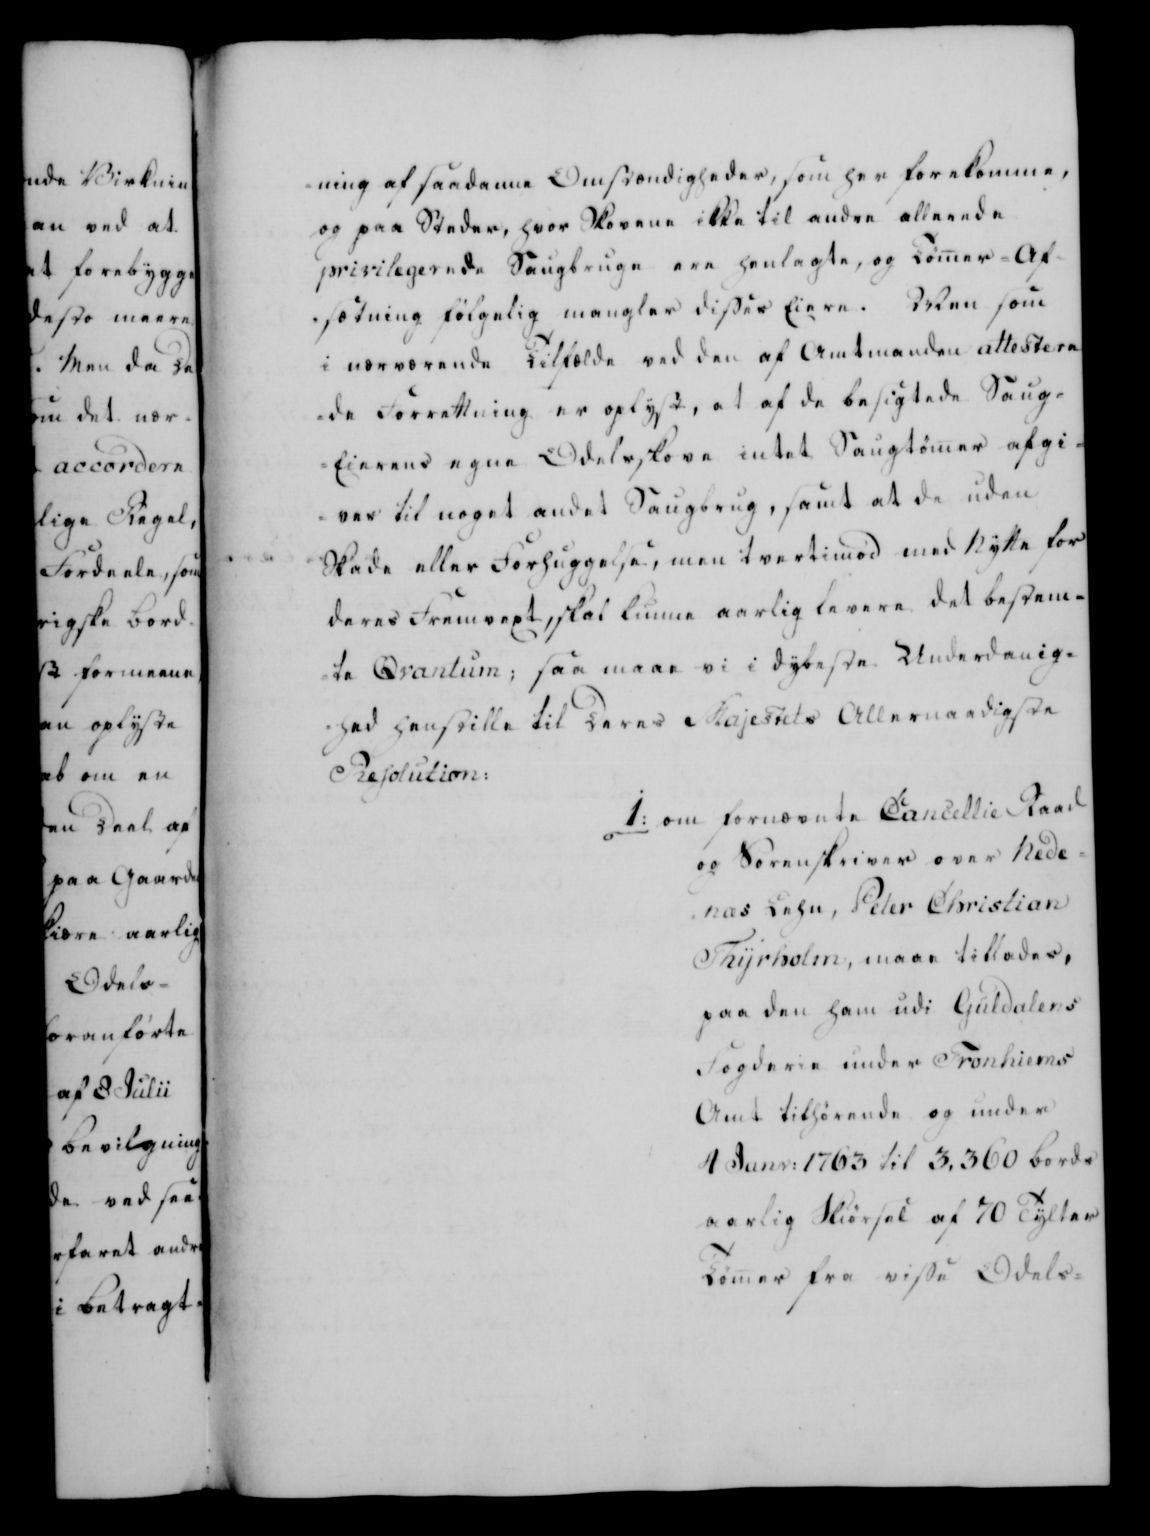 nde Virknin
an ved at
et forebygge
desto meere
. Men da De
om det nær-
accordere
lige Regel,
Fordeele, som
rigske Bord-
st formeene,
an oplyste
ab om en
en Deel af
paa Gaarde
kiære aarlig
Odels-
foranførte
af 8 Julii
bevilgning
de ved see
rfaret andre
i betragt-
-ning af saadanne Omstændigheder, som her forekomme,
og paa Steder, hvor Skovene ikke til andre allerede
privilegerede Saugbruge ere henlagte, og Tømmer-Af-
-sætning følgelig mangler disses Eiere. Men som
i nærværende Tilfælde ved den af Amtmanden attestere
-de Forrettning er oplyst, at af de besigtede Saug-
-Eierens egne Odelsskove intet Saugtømmer afgi-
-ves til noget andet Saugbrug, samt at de uden
Skade eller Forhuggelse, men tvertimod med Nytte for
deres Fremvext, skal kunne aarlig levere det bestem-
-te Qvantum; saa maae vi i dybeste Underdanig-
-hed henstille til Deres Majestets Allernaadigste
Resolution:
1: om fornævnte Cancellie Raad
og Sorenskriver over Nede-
-næs Lehn, Peter Christian
Thyrholm, maae tillades,
paa den ham udi Guldalens
Fogderie under Tronhiems
Amt tilhørende og under
4 Janr: 1763 til 3,360 Bords
aarlig Skiørsel af 70 Tylter
Tømmer fra visse Odels-